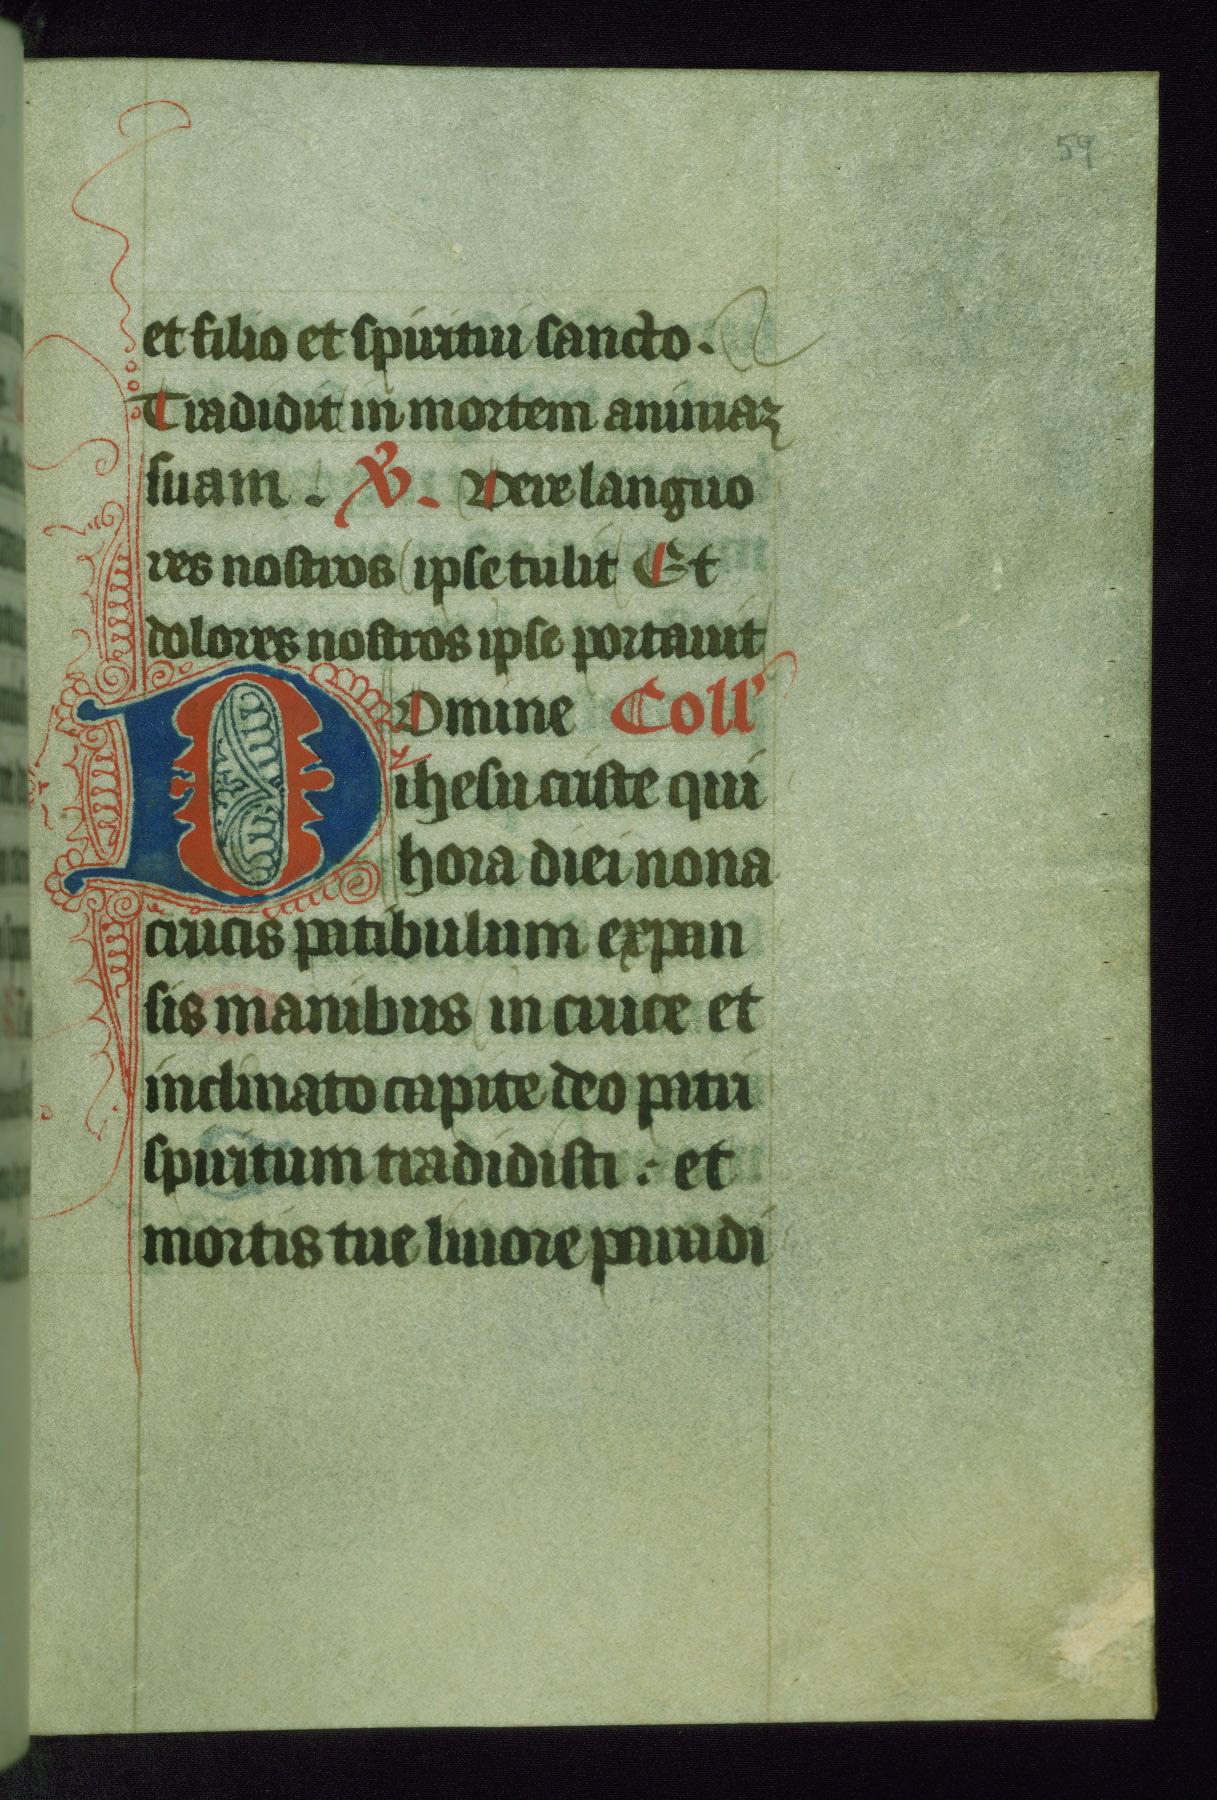 59
et filio et spiritui sancto.
Tradidit in mortem animaz
suam. ℣. Vere languo
res nostros ipse tulit Et
dolores nostros ipse portauit
DOmine Coll'
ihesu criste qui
hora diei nona
crucis patibulum expan
sis manibus in cruce et
inclinato capite deo patri
spiritum tradidisti : et
mortis tue liuore paradi